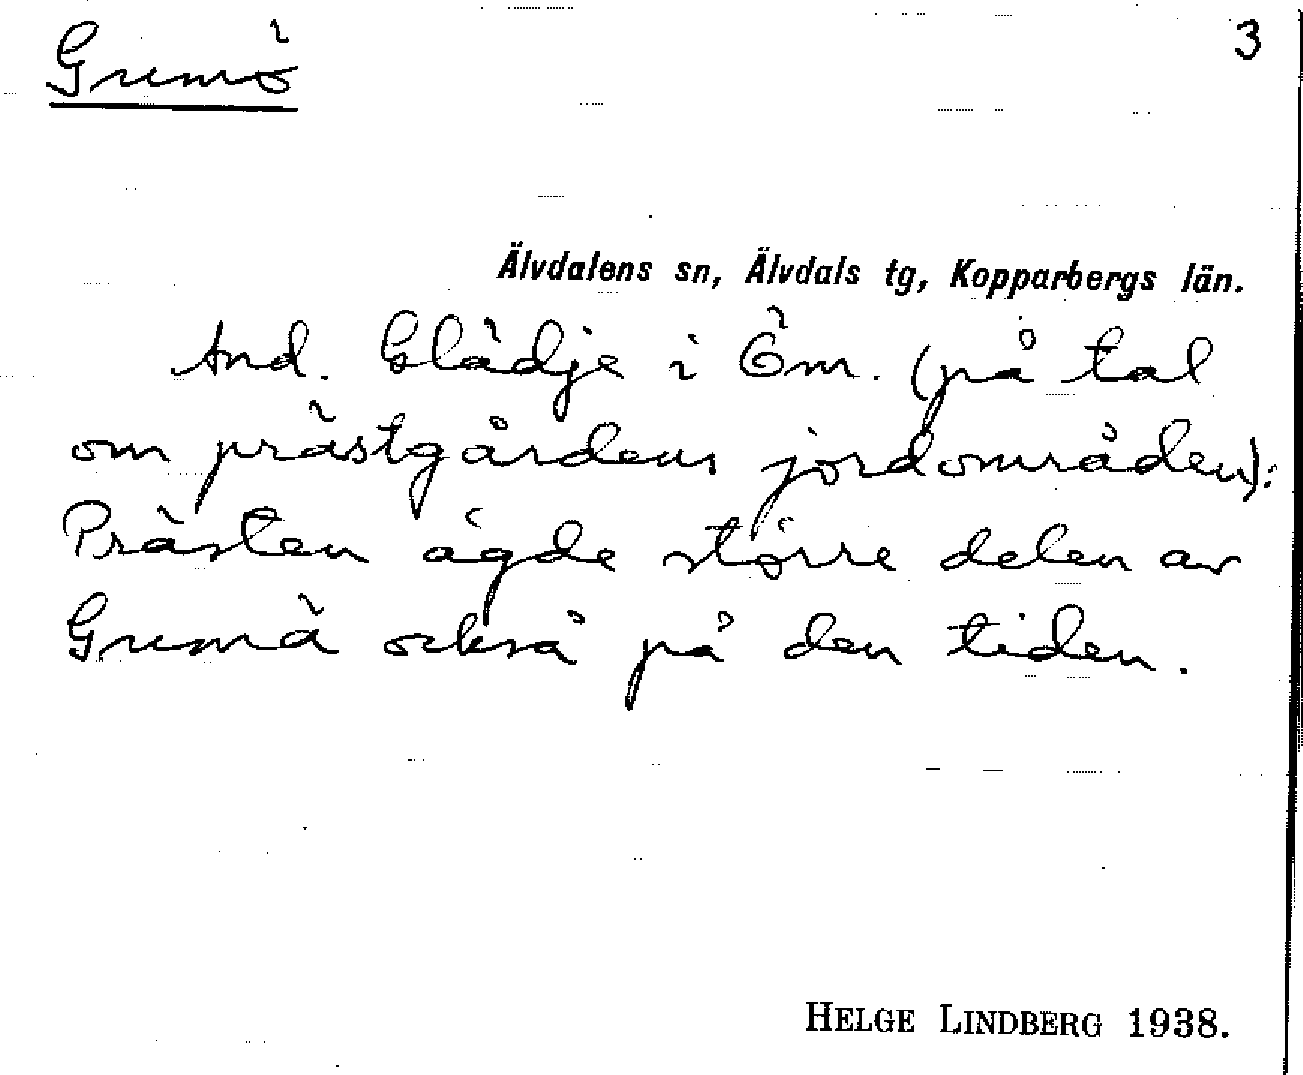 Grumö
3
Älvdalens sn, Älvdals tg, Kopparbergs län.
And. Glädje i Öm. (på tal
om prästgårdens jordområden):
Prästen ägde större delen av
Grumä också på den tiden.
HELGE LINDBERG 1938.